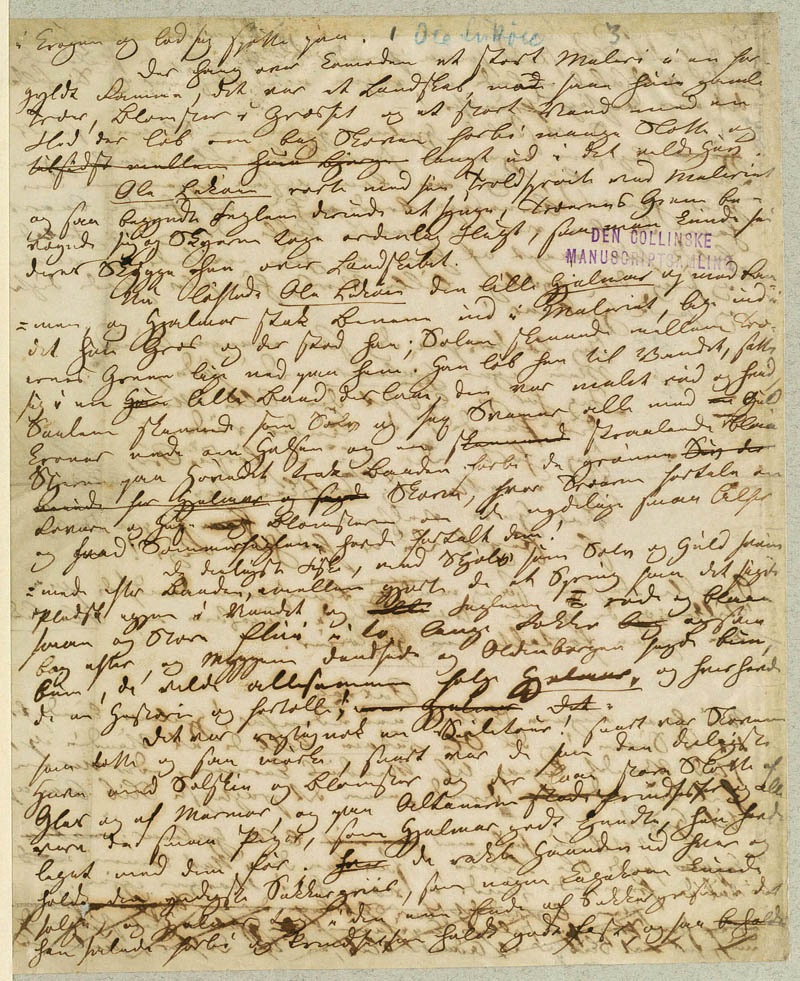 i Krogen og lod sig spytte paa. 1 Ole Lukøie 3.
Der hang over Comoden et stort Maleri i en for-
gyldt Ramme, det var et Landskab, man saae høie gamle
Træer, Blomster i Græsset og et stort Vand med en
Flod der løb om bag Skoven forbi mange Slotte og
tilsidst mellem høie Bjerge langt ud i det vilde Hav.
Ole Lukøie rørte med sin Troldsprøite ved Maleriet
og saa begyndte Fuglene derinde at synge, Træernes Grene be-
vægede sig og Skyerne toge ordenlig Flugt, man kunde see
deres Skygge hen over Landskabet.
DEN COLLINSKE
MANUSCRIPTSAMLING
Nu løftede Ole Lukøie den lille Hjalmar op mod Ram-
=men, og Hjalmar stak Benene ind i Maleriet, lige ind i
det høie Græs og der stod han; Solen skinnede mellem Træ-
ernes Grene lige ned paa ham. Han løb hen til Vandet, satte
sig i en lille Baad der laae, den var malet rød og hvid,
Seilene skinnede som Sølv og sex Svaner alle med Guld
Kroner nede om Halsen og en straalende blaa
Stjerne paa Hovedet trak Baaden forbi de grønne
Hjalmar og sagde Skove, hvor Træerne fortalte om
Røvere og Hexe og Blomsterne om de nydelige smaa Alfer
og hvad Sommerfuglene havde fortalt dem!
De deiligste Fiske, med Skjæl som Sølv og Guld svøm
=mede efter Baaden, imellem gjorde de et Spring saa det sagde
pladsk igjen i Vandet og Fuglene røde og blaae
smaa og store fløi i to lange Rækker
bag efter, og Myggene dandsede og Oldenborgen sagde bum,
bum, de vilde allesammen følge Hjalmar, og hver havde
de en Historie at fortælle!
Det var rigtignok en Seiletour! snart var Skovene
saa tætte og saa mørke, snart var de som den deiligste
Have med Solskin og Blomster og der laae store Slotte af
Glas og af Marmor, og paa Altanerne stode Prindsesser og alle
vare de smaa Piger, som Hjalmar godt kjendte, han havde
leget med dem før. de rakte Haanden ud hver og
holdt den yndigste Sukkergriis, som nogen Kagekone kunde
sælge, og Hjalmar tog i den ene Ende af Sukkergrisen i det
han seilede forbi og Prindsessen holdt godt fast, og saa beholdt